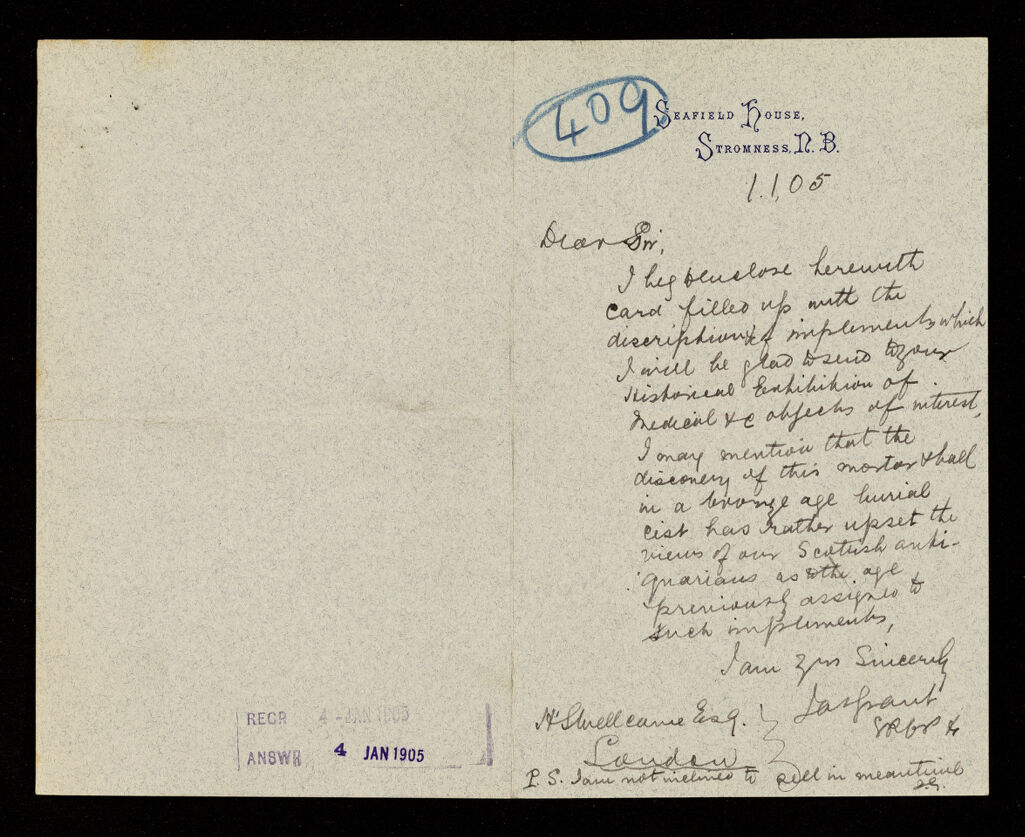 409
SEAFIELD HOUSE,
STROMNESS, N. B.
1.1.05
Dear Sir,
I beg to enclose herewith
card filled up with the
discription of implements which
I will be glad to send to your
Historical Exhibition of
Medical &c objects of interest,
I may mention that the
discovery of this mortar & ball
in a bronze age burial
cist has rather upset the
views of our Scotish anti-
quarians as to the age
previously assigned to
such implements,
I am yrs Sincerely
Jas Grant
LRCP &c
H S Wellcome Esq.
London
P. S. I am not inclined to sell in meantime
J.G.
RECR 4 - JAN 1905
ANSWR 4 JAN 1905